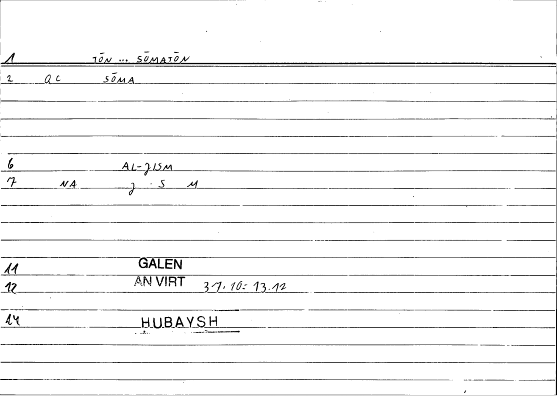 1 TŌN ... SŌMATŌN
2 QC SŌMA
6 AL-JISM
7 NA J S M
11 GALEN
12 AN VIRT 37.10: 13.12
14 HUBAYSH